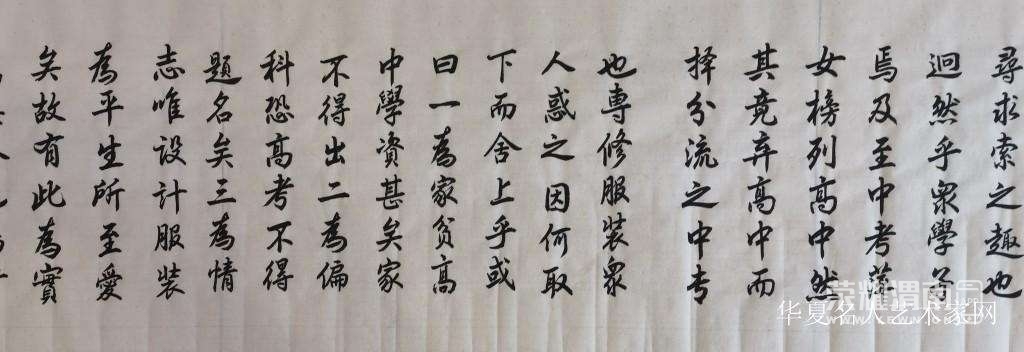 尋求索之趣也
迥然乎眾學
焉及至中考
女榜列高中然
其竟弃高中而
择分流之中专
也專修服裝眾
人惑之因何取
下而舍上乎或
曰一為家贫高
中學資甚矣家
不得出二為偏
科恐高考不得
題名矣三為情
志唯設計服裝
為平生所至愛
矣故有此為實
华夏名人艺术家网